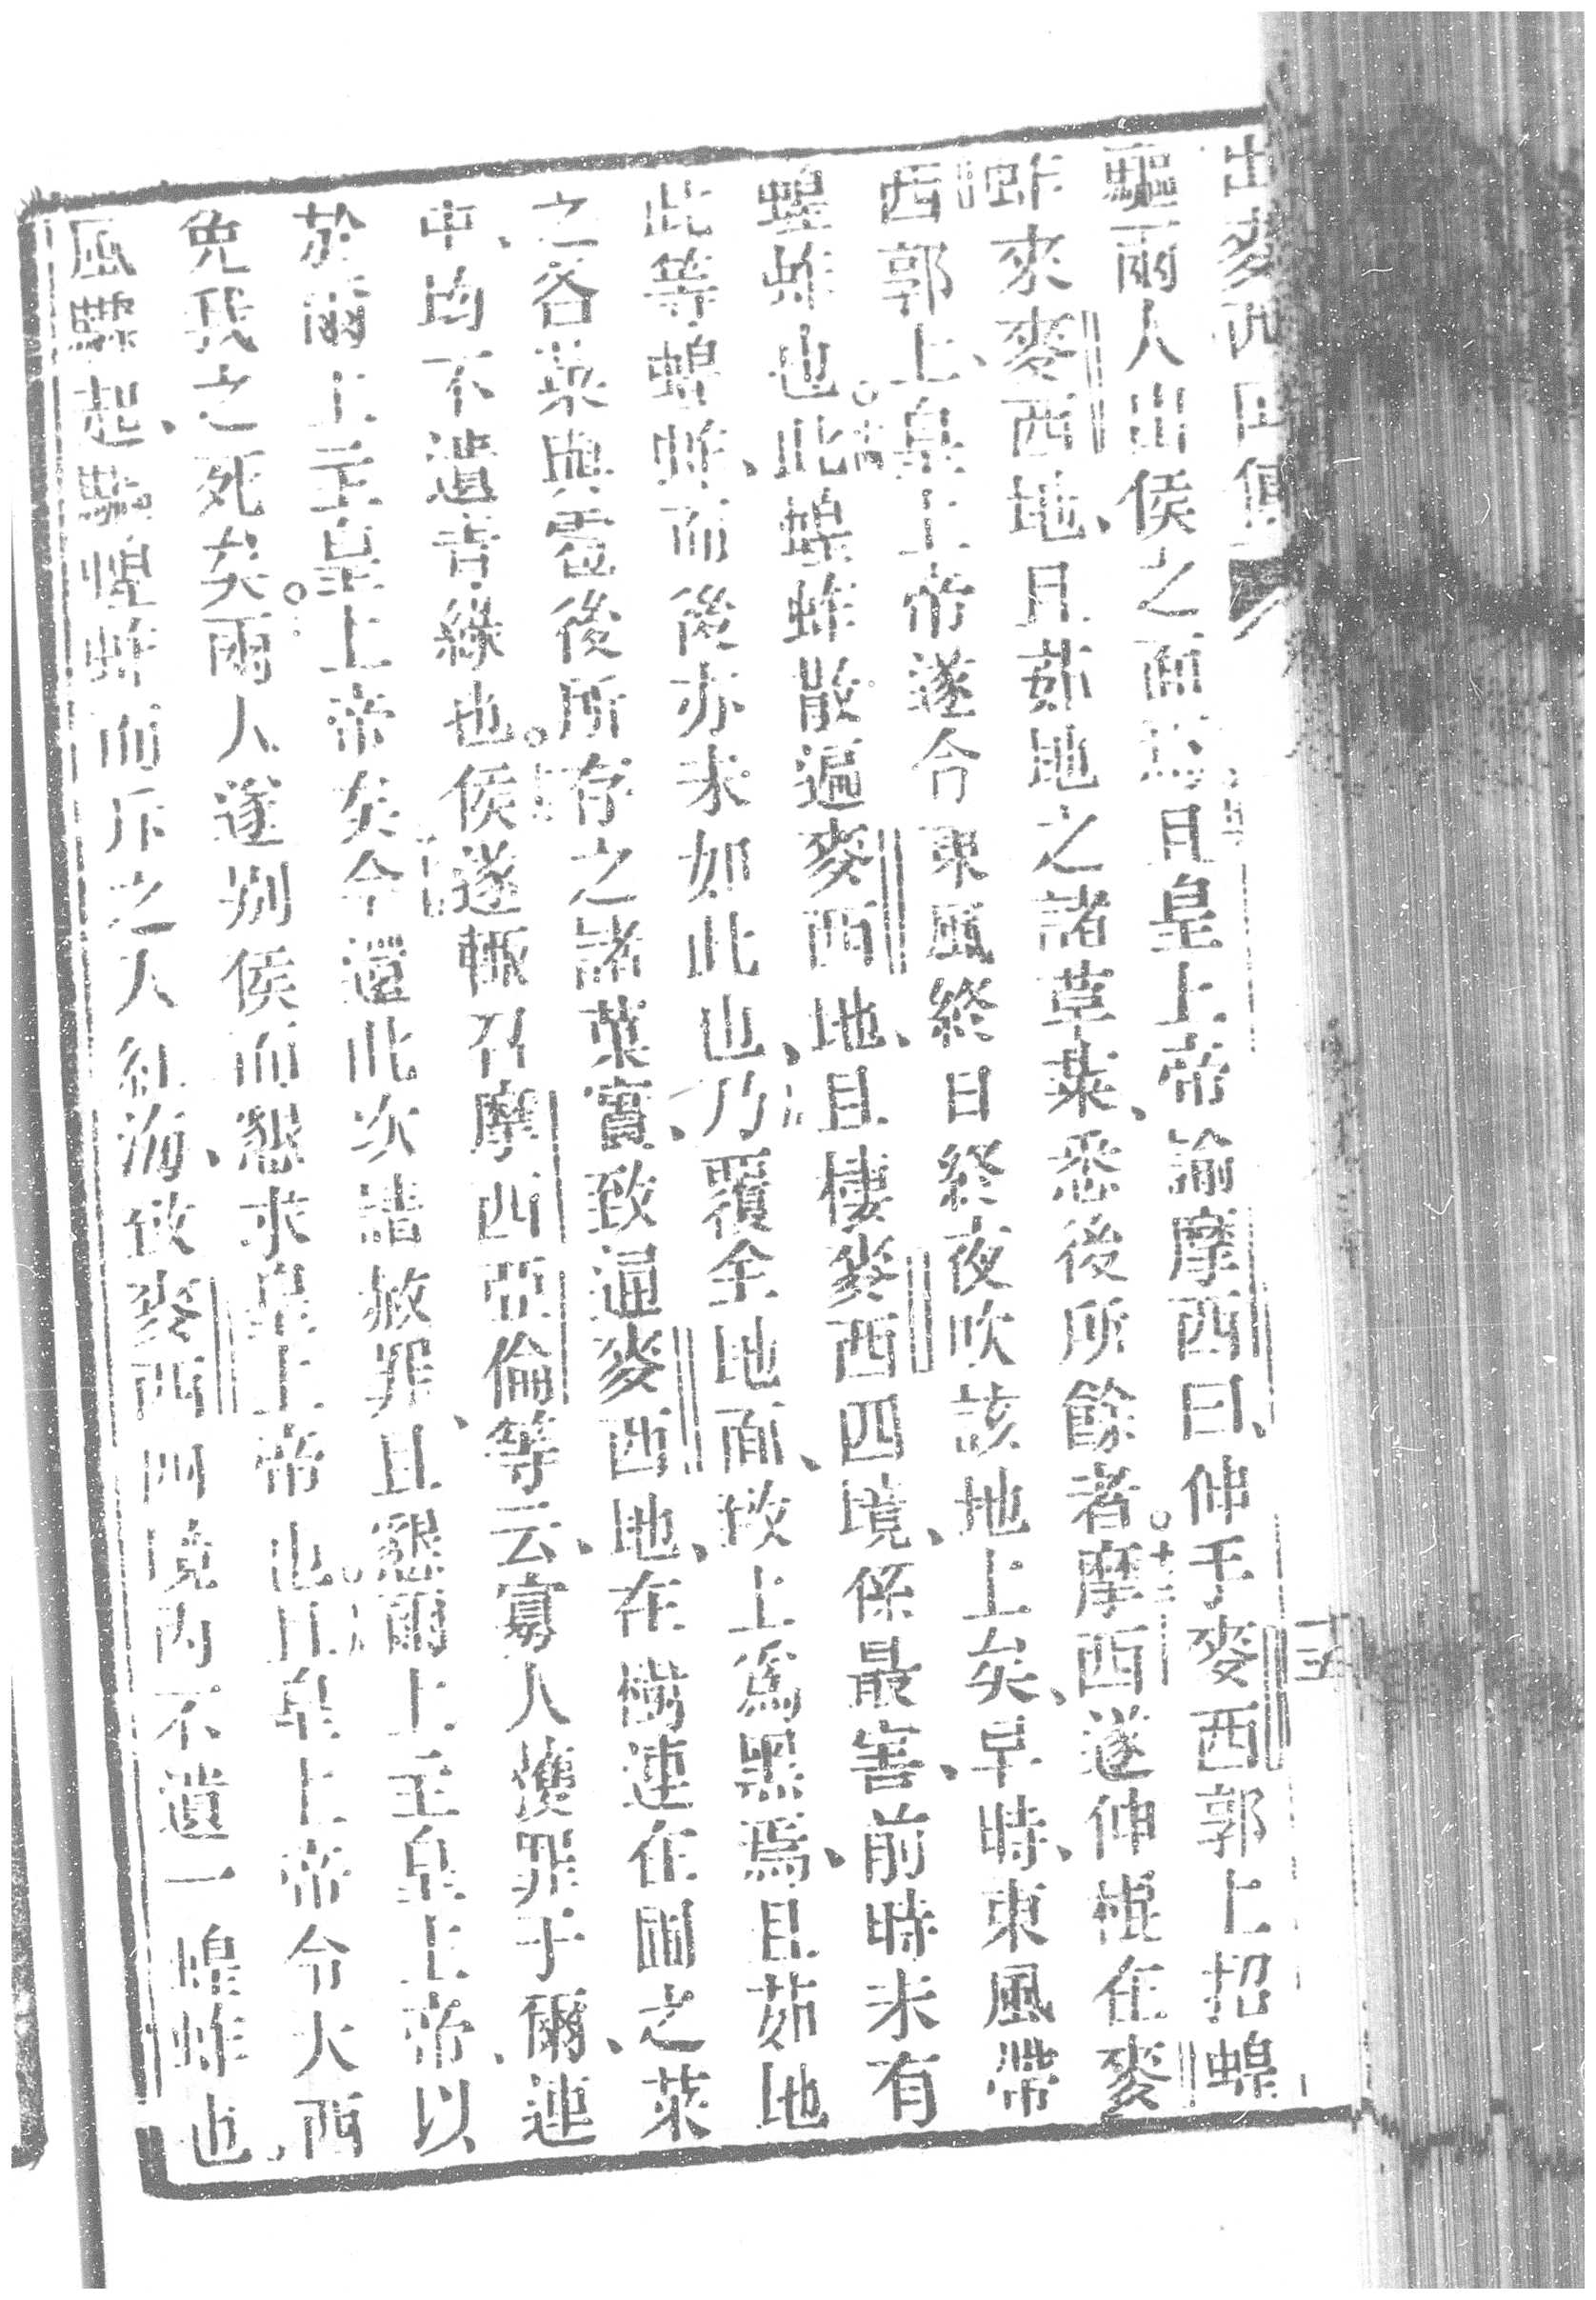 出麥西囘傳
三
驅兩人出侯之面焉且皇上帝諭摩西曰、伸手麥西郭上招蝗
蚱來麥西地、且茹地之諸草菜、悉後所餘者。摩西遂伸棍在麥
西郭上、皇上帝遂令東風終日終夜吹該地上矣、早時、東風帶
蝗蚱也。此蝗蚱散遍麥西地、且棲麥西四境、係最害、前時未有
此等蝗蚱、而後亦未如此也、乃覆全地面、致上爲黑焉、且茹地
之各菜與雹後所存之諸菓實、致逼麥西地、在樹連在田之菜
中、均不遺青綠也。侯遂輒召摩西亞倫等云、寡人獲罪于爾、連
於爾上主皇上帝矣今還此次請赦罪、且懇爾上主皇上帝、以
免我之死矣。兩人遂別侯而懇求皇上帝也。且皇上帝令大西
風驟起、驅蝗蚱而斥之入紅海、致麥西四境內不遺一蝗蚱也、